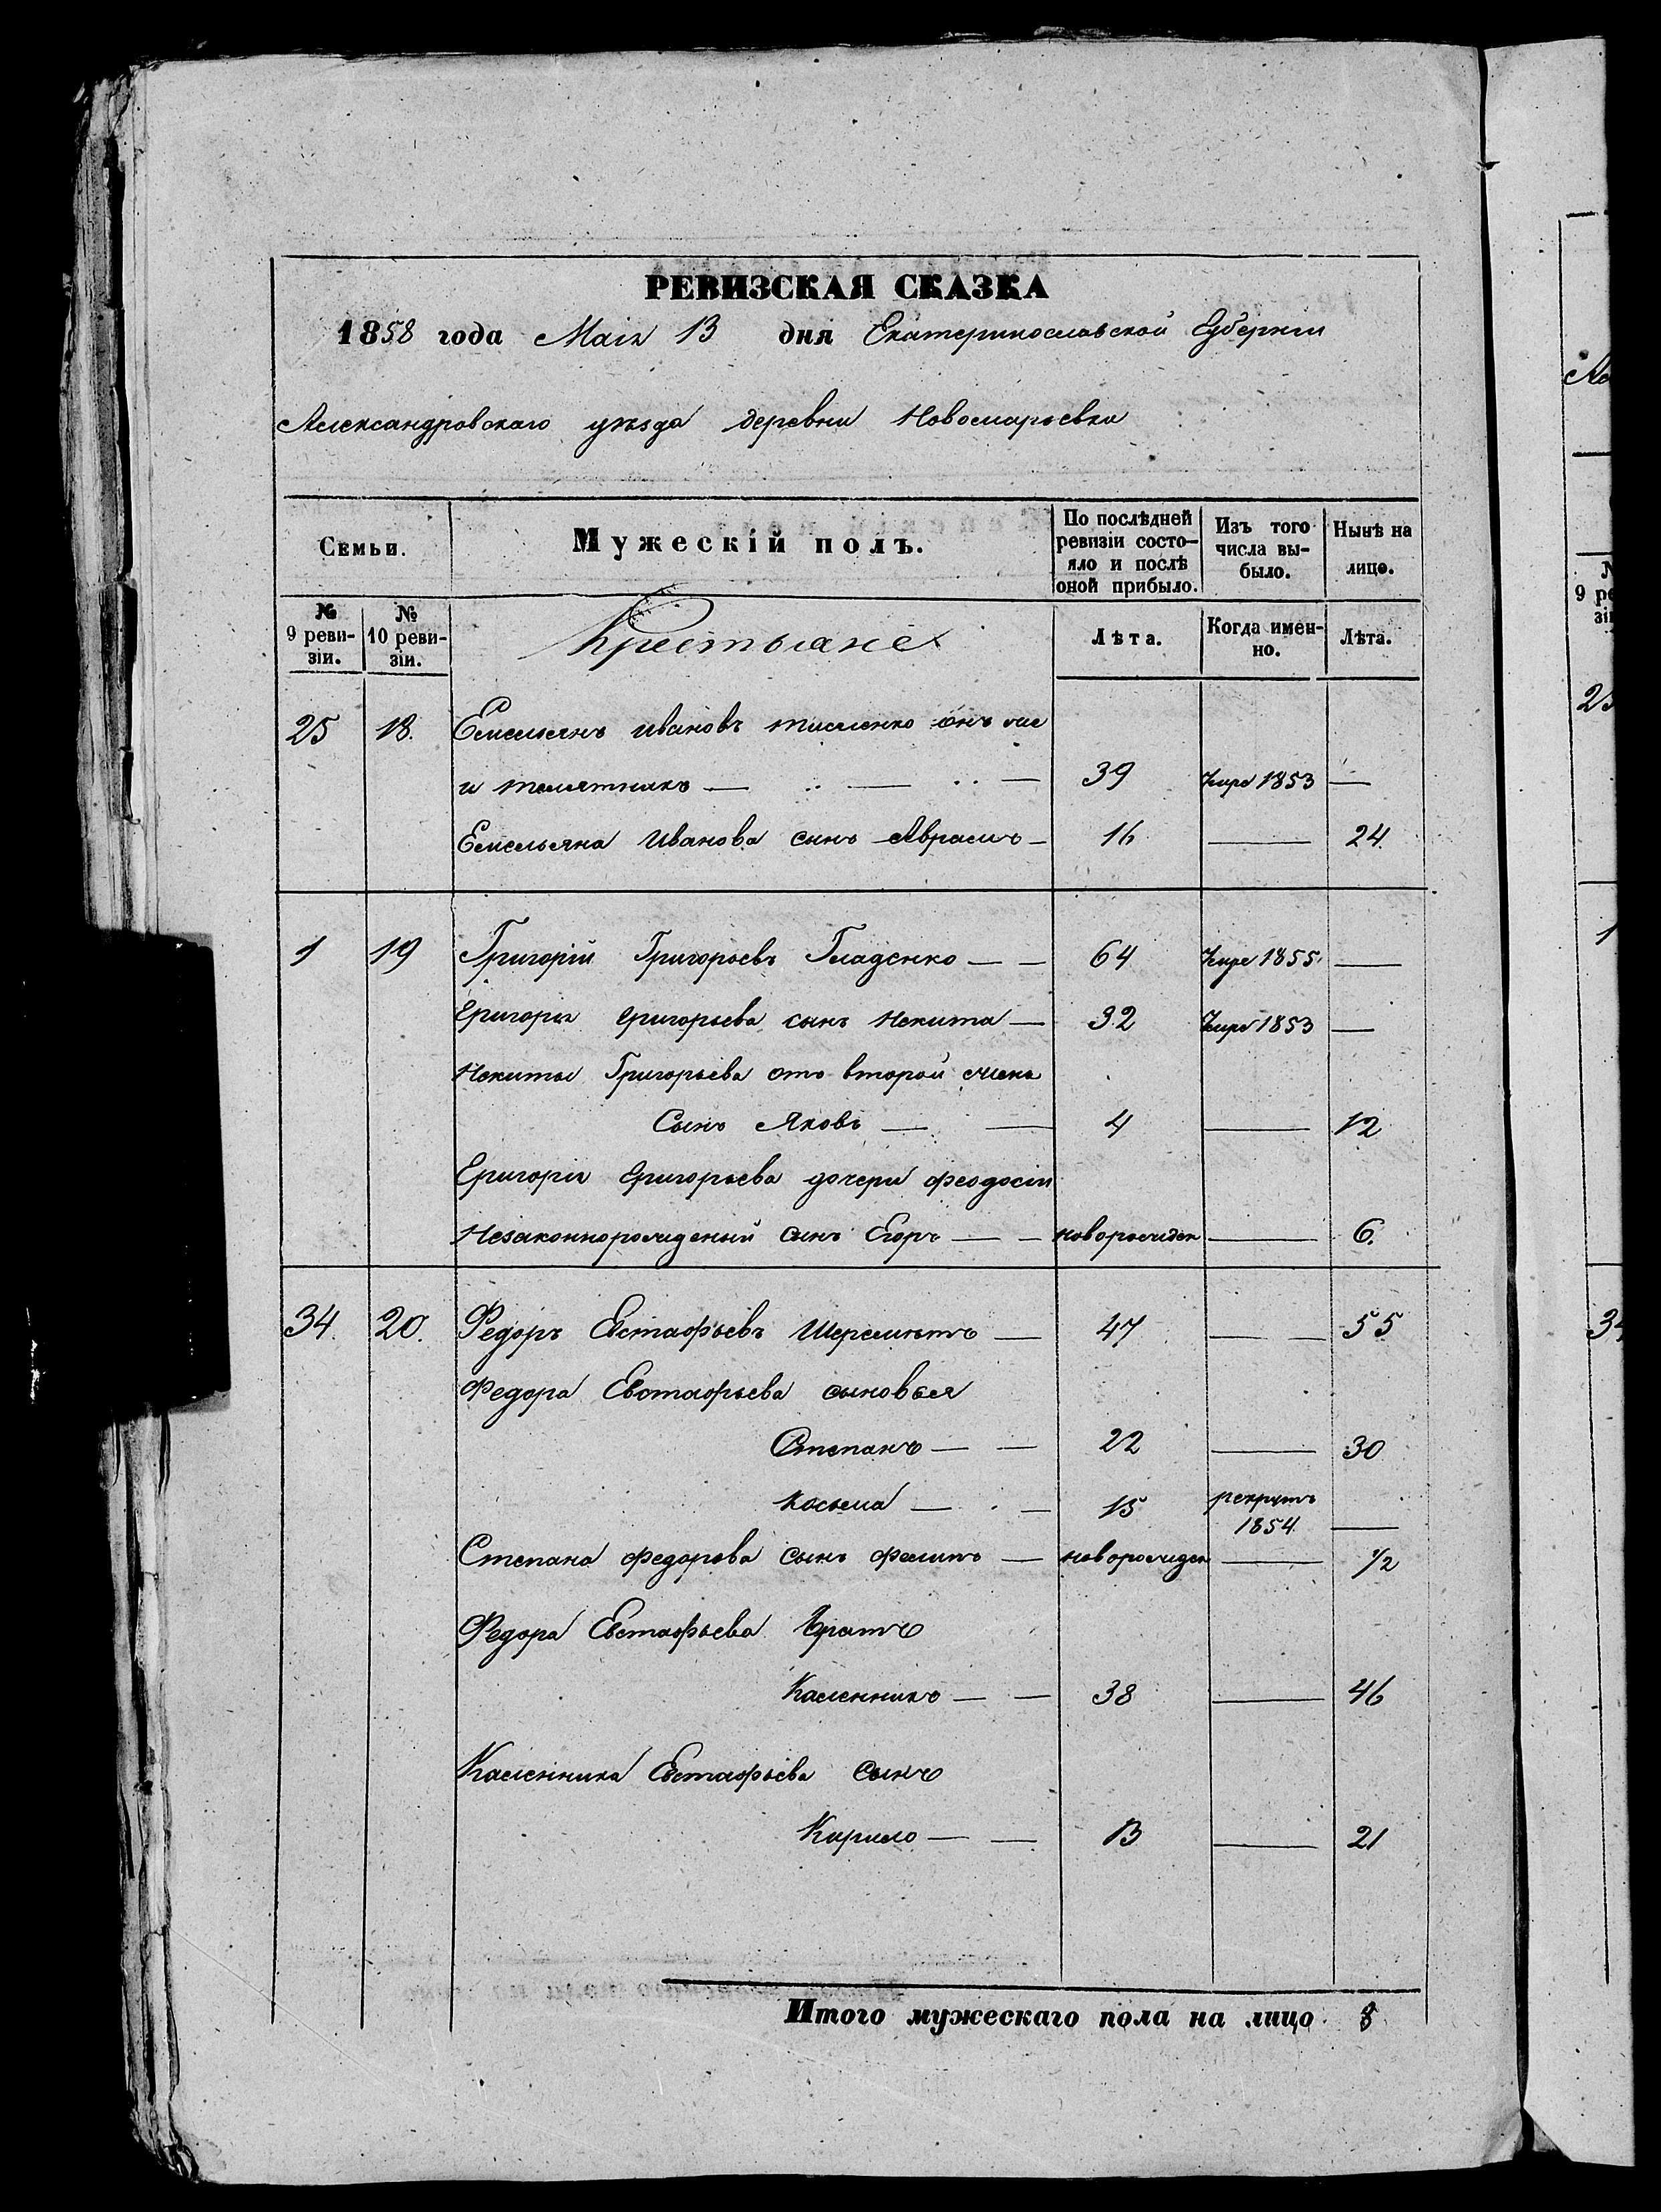 РЕВИЗСКАЯ СКАЗКА
1858 года Маія 13 дня Екатеринославской Губерніи
Александровскаго уѣзда деревни Новомарьевки
Семьи.
Мужескій полъ.
По послѣдней ревизіи состо-яло и послѣ оной прибыло.
Изъ того числа вы-было.
Нынѣ на лицо.
№ 9 реви-зіи.
№ 10 реви-зіи.
Крестьяне
Лѣта.
Когда имен-но.
Лѣта.
25 18. Емельянъ Ивановъ Тисленко онъ же
и Телятникъ — — — 39 Умре 1853 —
Емельяна Иванова сынъ Аврамъ — 16 — 24.
1 19 Григорій Григорьевъ Гладенко — — 64 Умре 1855 —
Григорія Григорьева сынъ Некита — 32 Умре 1853 —
Некиты Григорьева отъ второй жены
Сынъ Яковъ — — 4 — 12
Григорія Григорьева дочери Феодосіи
Незаконнорожденый сынъ Егоръ — — новорожден — 6.
34. 20. Федоръ Евстафьевъ Шереметъ — 47 — — 55
Федора Евстафьева сыновья
Степанъ — — 22 — 30
Косьма — — 15 рекрутъ 1854 —
Степана Федорова сынъ Филипъ — новорожден — 1/2
Федора Евстафьева братъ
Каленникъ — — 38 — 46
Каленника Евстафьева сынъ
Кирило — — 13 — 21
Итого мужескаго пола на лицо 8